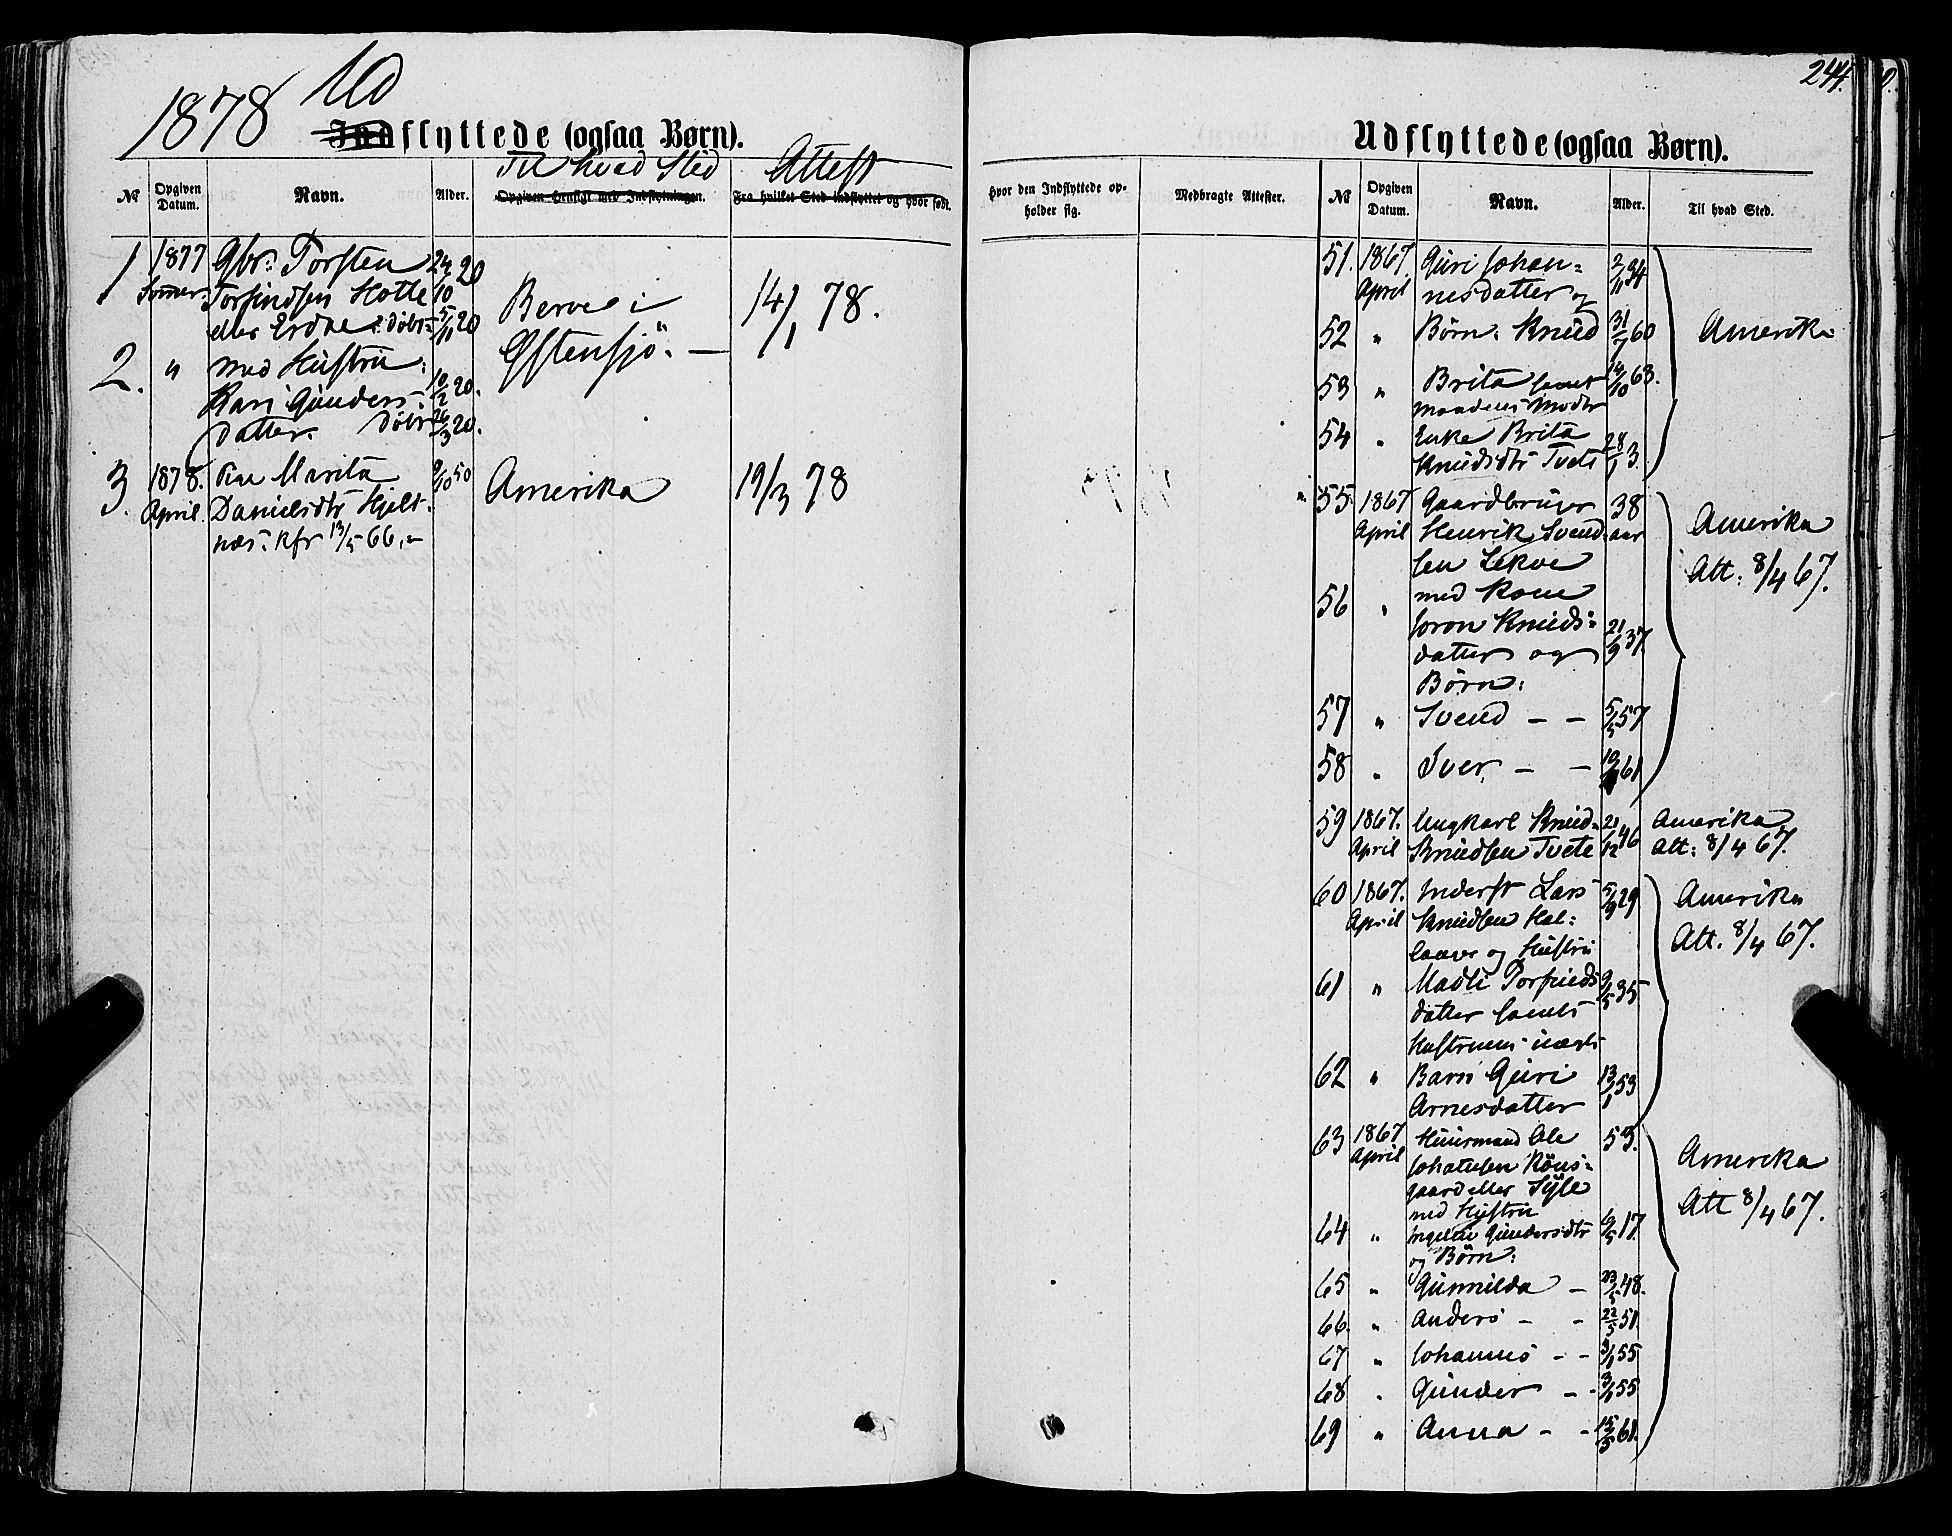 1878
Ud
Indflyttede (ogsaa Børn).
Til hvad Sted
Attest
№
Opgiven Datum.
Navn.
Alder.
Opgiven Hensigt med Indflytningen.
Fra hvilket Sted indflyttet og hvor født.
1
1877
Sommer
Gbr. Torsten
Torfindsen Hotle
eller Erdal døbt
24/10 20
5/11 20
Berve i
Østensjö. —
14/1 78.
2.
"
med Hustru
Kari Gunders-
datter. døbt
10/2 20.
26/3 20.
3.
1878.
April.
Pige Marita
Danielsdtr Hjelt-
næs. kfr 13/5 66.
9/10 50
Amerika
19/3 78
244.
Udflyttede (ogsaa Børn).
Hvor den Indflyttede op-
holder sig.
Medbragte Attester.
№
Opgiven Datum.
Navn.
Alder.
Til hvad Sted.
51.
1867.
April
Guri Johan-
nesdatter og
2/11 34
Amerika
52
"
Børn: Knud
31/7 60
53
"
Brita samt
mandens Moder
14/10 63.
54
"
Enke Brita
Knudsdtr Tveit
28/1 3.
55.
1867
April
Gaardbruger
Henrik Svend-
sen Lekve
38
aar
Amerika
Att: 8/4 67.
56
"
med Kone
Joron Knuds-
datter og
Børn:
21/9 37
57
"
Svend — —
5/5 57
58
"
Iver, — —
61
59
1867.
April
Ungkarl Knud
Knudsen Tvete
21/12 46
Amerika
Att: 8/4 67.
60
1867.
April
Inderst Lars
Knudsen Hal-
og Hustru
5/9 29
Amerika
Att. 8/4 67.
61
"
Madli Torfinds
datter samt
Hustruens uægte
9/5 35
62
"
Barn Guri
Arnesdatter
13/1 53
63
1867
April
Huusmand Ole
Johannesen Röns-
gaard eller Syse
53.
Amerika
Att 8/4 67.
64
"
med Hustru
Gundersdtr
og Børn:
6/5 17
65
"
Gunnilda —
23/5 48.
66.
"
Anders — -
22/5 51
67
"
Johannes - -
3/1 55
68
"
Gunder - -
3/1 55
69
"
Anna - -
15/5 61.